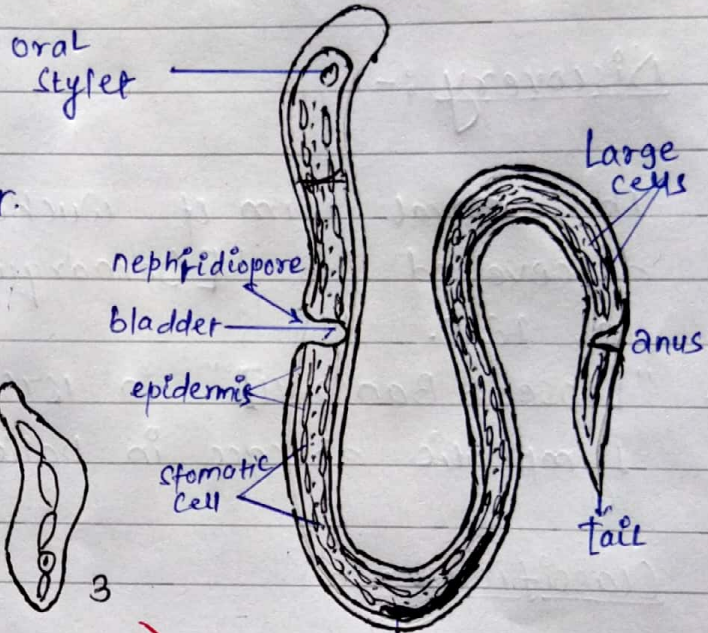 oral
stylet
Large
cells
r.
nephridiopore
bladder
anus
epidermis
stomatic
cell
tail
3